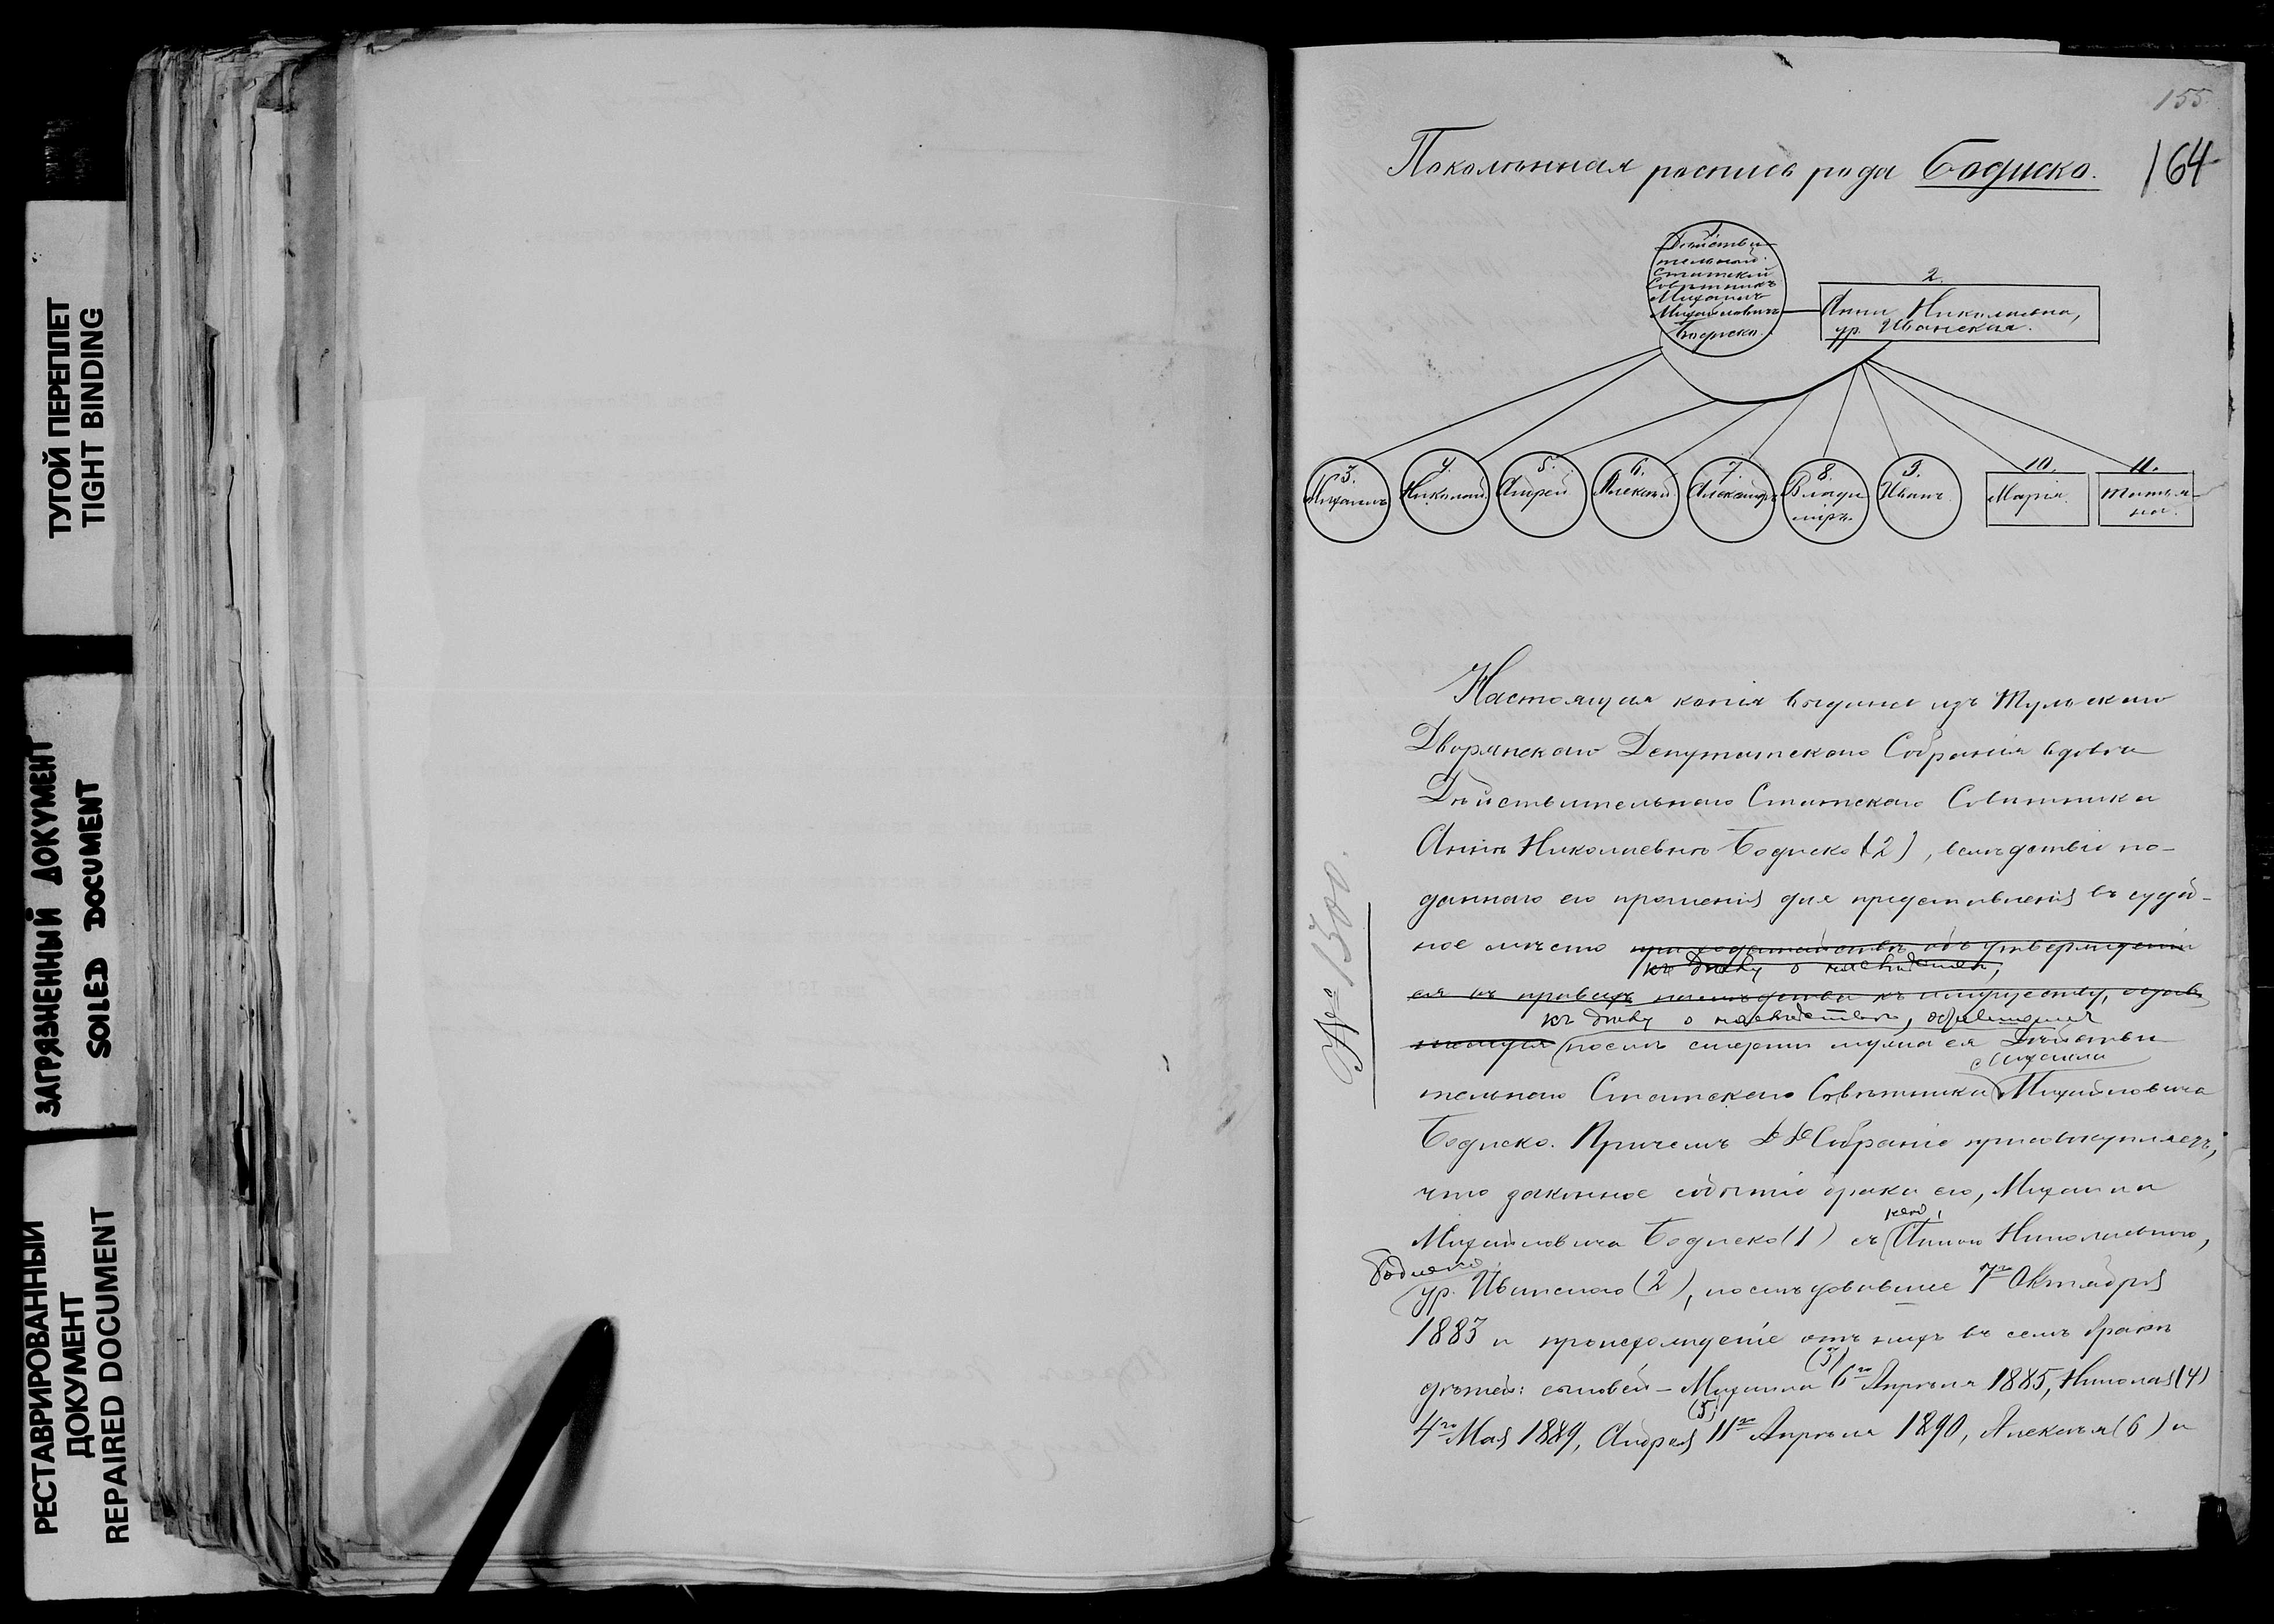 ТУГОЙ ПЕРЕПЛЕТ
TIGHT BINDING
ЗАГРЯЗНЕННЫЙ ДОКУМЕНТ
SOILED DOCUMENT
РЕСТАВРИРОВАННЫЙ
ДОКУМЕНТ
REPAIRED DOCUMENT
155
164
Поколѣнная роспись рода Бодиско.
1
Дѣйстви-
тельный
Статскій
Совѣтникъ
Михаилъ
Михайловичъ
Бодиско.
2.
Анна Николаевна,
ур. Иванская.
3.
Михаилъ
4.
Николай
5.
Андрей
6.
Алексѣй
7.
Александръ
8.
Влади
міръ.
9.
Иванъ.
10.
Марія.
11.
Татья-
на.
№ 1500.
Настоящая копія выдана изъ Тульскаго
Дворянскаго Депутатскаго Собранія вдовѣ
Дѣйствительнаго Статскаго Совѣтника
Аннѣ Николаевнѣ Бодиско (2), вслѣдствіе по-
даннаго ею прошенія для представленія въ судеб-
ное мѣсто при ходатайствѣ объ утвержденіи
къ дѣлу о наслѣдствѣ,
ея въ правахъ наслѣдства къ имуществу, остав
къ дѣлу о наслѣдствѣ, оставшемся
шемуся послѣ смерти мужа ея Дѣйстви
Михаила
тельнаго Статскаго Совѣтника Михайловича
Бодиско. Причемъ Д. Д. Собраніе присовокупляетъ,
что законное событіе брака его, Михаила
Михайловича Бодиско (1) съ Анною Николаевною,
Бодиско,
ур. Иванскою (2), послѣдовавшее 7го Октября
1883 и происхожденіе отъ нихъ въ семъ бракѣ
дѣтей: сыновей - Михаила (3) 6го Апрѣля 1885, Николая (4)
4го Мая 1889, Андрея (5) 11го Апрѣля 1890, Алексѣя (6) и